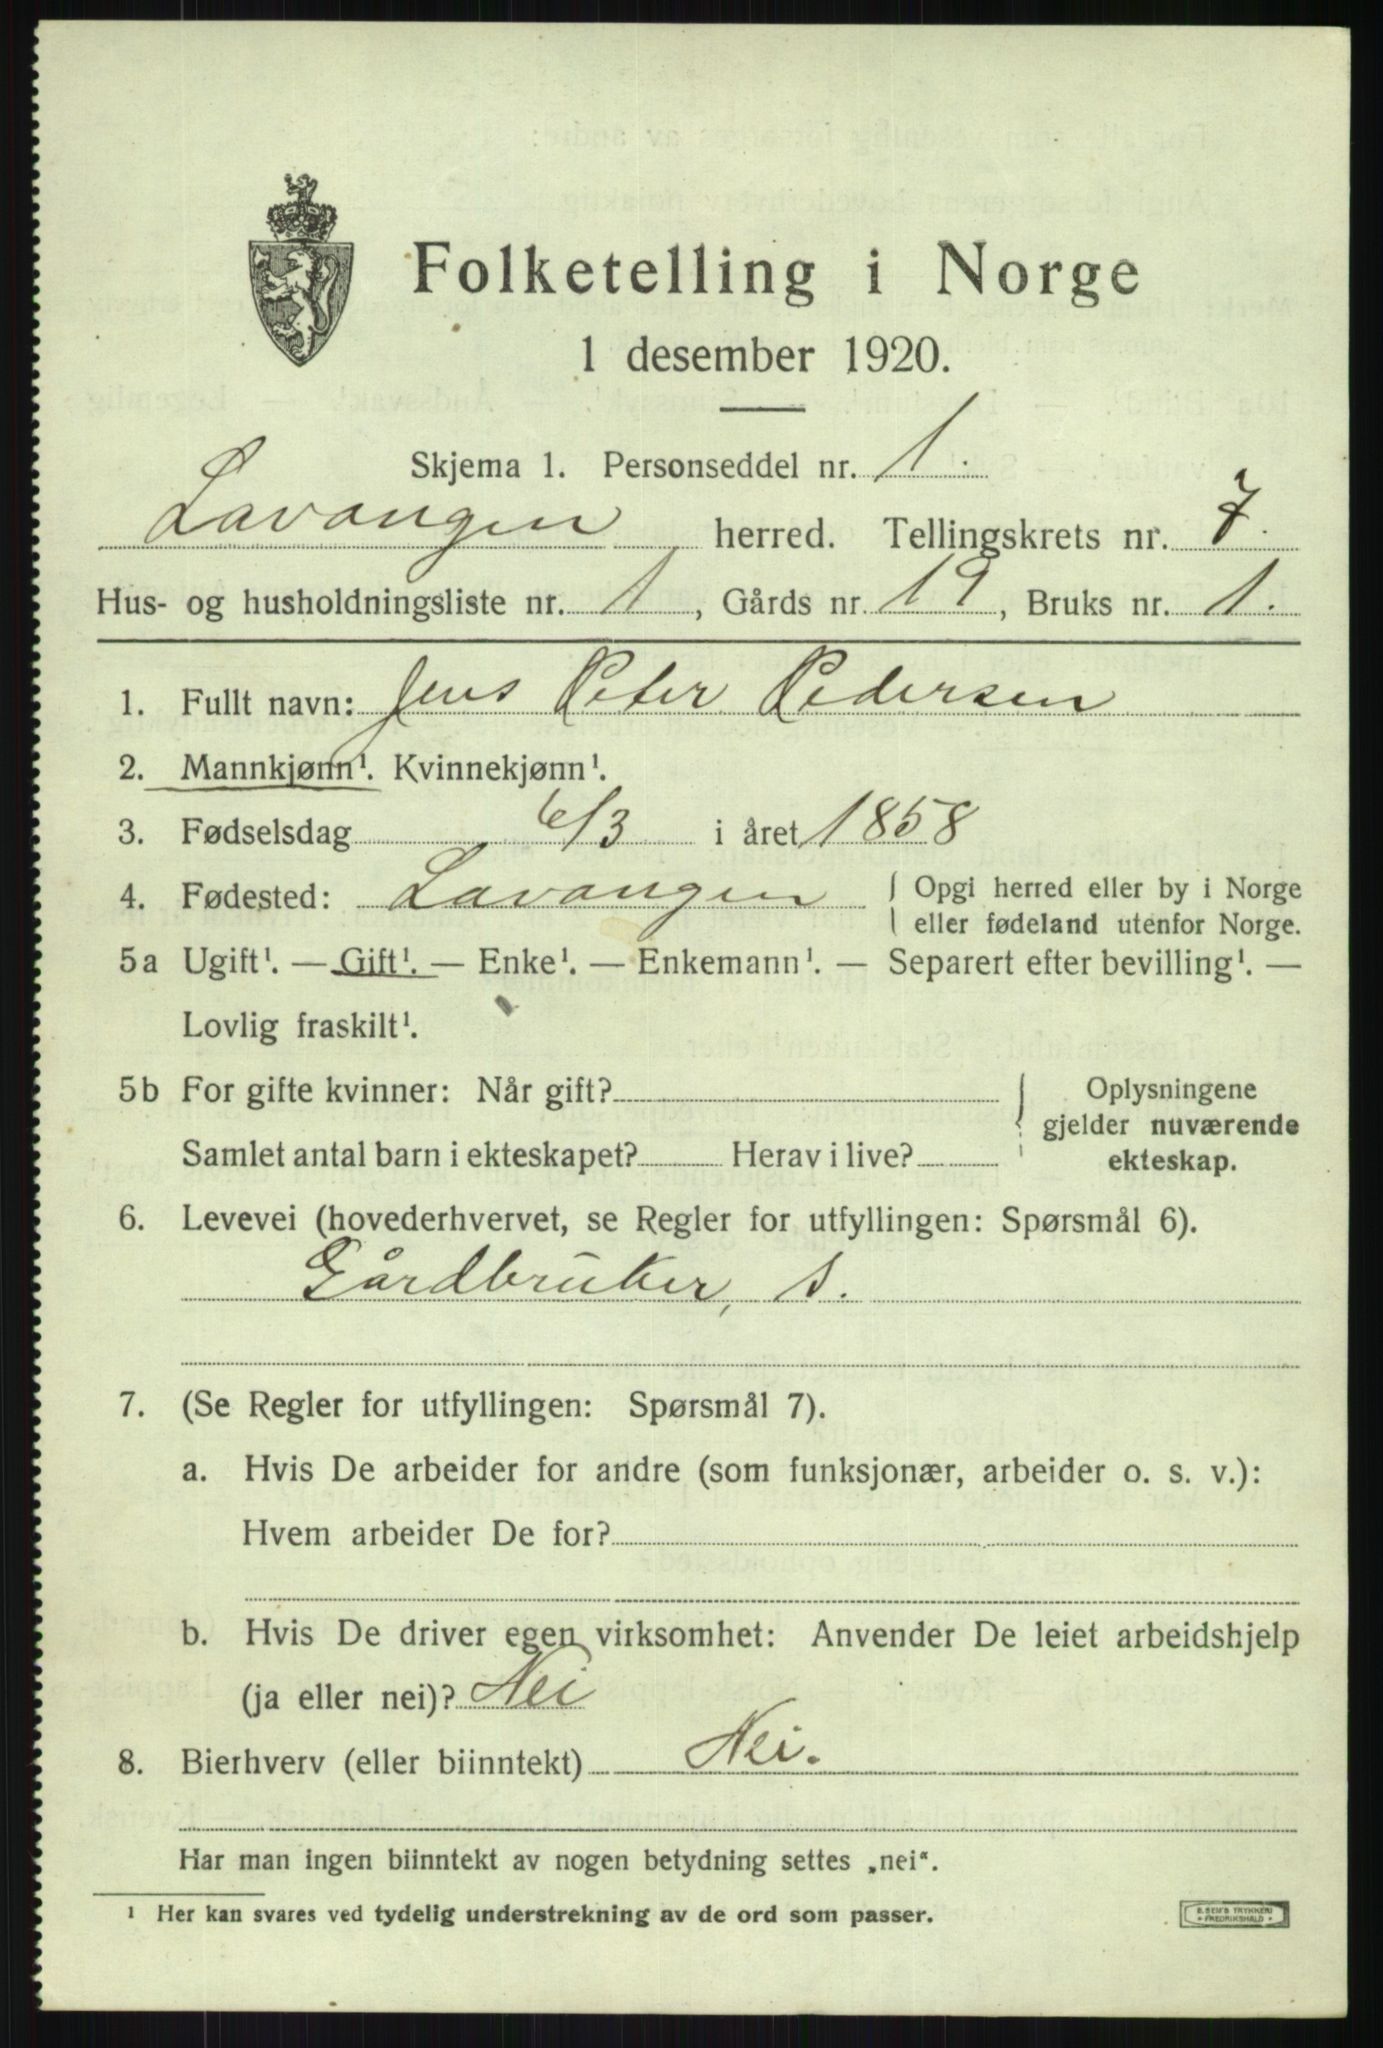 Folketelling i Norge
1 desember 1920.
Skjema 1. Personseddel nr. 1.
Lavangen herred. Tellingskrets nr. 7.
Hus- og husholdningsliste nr. 1, Gårds nr. 19, Bruks nr. 1.
1. Fullt navn: Jens Peter Pedersen
2. Mannkjønn¹. Kvinnekjønn¹.
3. Fødselsdag 6/3 i året 1858
4. Fødested: Lavangen { Opgi herred eller by i Norge
eller fødeland utenfor Norge.
5a Ugift¹. — Gift¹. — Enke¹. — Enkemann¹. — Separert efter bevilling¹. —
Lovlig fraskilt¹.
5b For gifte kvinner: Når gift? { Oplysningene
gjelder nuværende
Samlet antal barn i ekteskapet? Herav i live? ekteskap.
6. Levevei (hovederhvervet, se Regler for utfyllingen: Spørsmål 6).
Gårdbruker, s.
7. (Se Regler for utfyllingen: Spørsmål 7).
a. Hvis De arbeider for andre (som funksjonær, arbeider o. s. v.):
Hvem arbeider De for?
b. Hvis De driver egen virksomhet: Anvender De leiet arbeidshjelp
(ja eller nei)? Nei
8. Bierhverv (eller biinntekt) Nei.
Har man ingen biinntekt av nogen betydning settes „nei“.
¹ Her kan svares ved tydelig understrekning av de ord som passer.
E. SEM'S TRYKKERI
• FREDRIKSHALD •